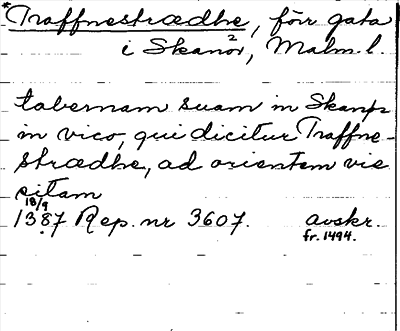 *Traffnestrædhe, förr gata
i Skanör, Malm. l.
tabernam suam in Skanør
in vico, qui dicitur Traffne-
strædhe, ad orientem vie
sitam
18/9
1387 Rep. nr 3607. avskr.
fr. 1494.